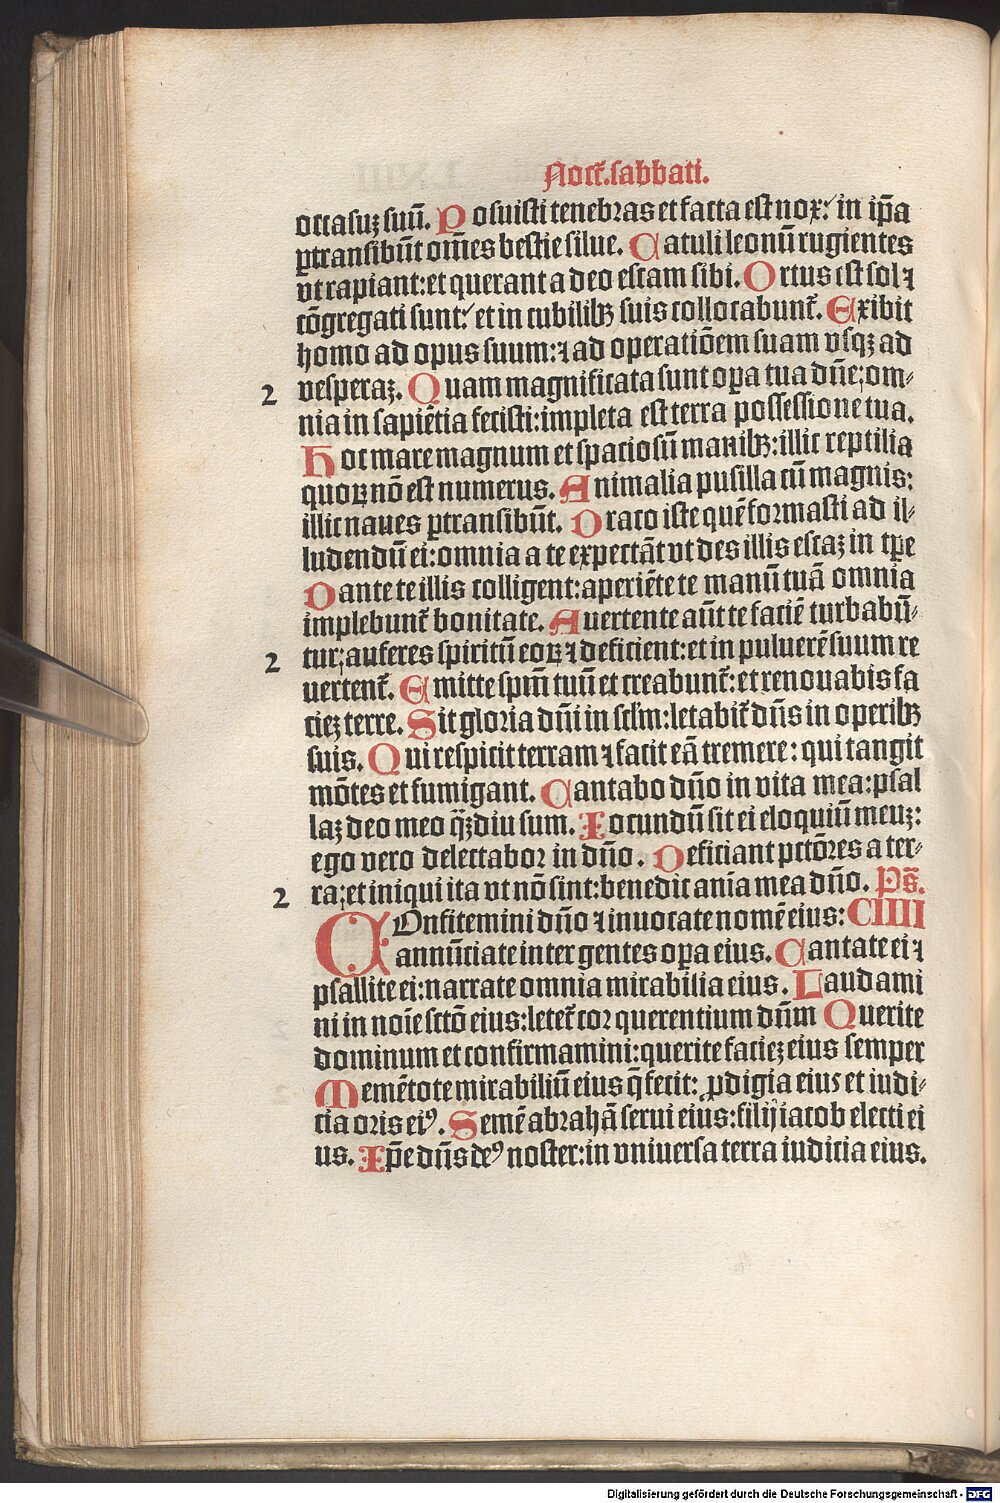 Noct̄.sabbati.
occasuꝫ suū. Posuisti tenebras et facta est nox: in ip̄a
ꝑtransibūt om̄es bestie silue. Catuli leonū rugientes
vt rapiant: et querant a deo escam sibi. Ortus est sol ⁊
cōgregati sunt: et in cubilibꝫ suis collocabunt̄. Exibit
homo ad opus suum: ⁊ ad operatiōem suam vsqꝫ ad
2 vesperaꝫ. Quam magnificata sunt oꝑa tua dn̄e; om⸗
nia in sapiētia fecisti: impleta est terra possessione tua.
Hoc mare magnum et spaciosū manibꝫ: illic reptilia
quoꝝ nō est numerus. Animalia pusilla cū magnis:
illic naues ꝑtransibūt. Draco iste quē formasti ad il⸗
ludendū ei: omnia a te expectāt vt des illis escaꝫ in tp̄e
Dante te illis colligent: aperiēte te manū tuā omnia
implebunt̄ bonitate. Auertente aūt te faciē turbabū⸗
2 tur; auferes spiritū eoꝝ ⁊ deficient: et in puluerē suum re
uertent̄. Emitte spm̄ tuū et creabunt̄: et renouabis fa
cieꝫ terre. Sit gloria dn̄i in scl̄m: letabit̄ dn̄s in operibꝫ
suis. Qui respicit terram ⁊ facit eā tremere: qui tangit
mōtes et fumigant. Cantabo dn̄o in vita mea: psal
laꝫ deo meo qꝫ̄diu sum. Iocundū sit ei eloquiū meuꝫ:
ego vero delectabor in dn̄o. Deficiant pctōres a ter⸗
2 ra; et iniqui ita vt nō sint: benedic anīa mea dn̄o. Ps̄.
COnfitemini dn̄o ⁊ inuocate nomē eius: CIIII
annūciate inter gentes oꝑa eius. Cantate ei ⁊
psallite ei: narrate omnia mirabilia eius. Laudami
ni in noīe sctō eius: letet̄ cor querentium dn̄m Querite
dominum et confirmamini: querite facieꝫ eius semper
Memētote mirabiliū eius q̄ fecit: ꝓdigia eius et iudi⸗
cia oris eiꝰ. Semē abrahā serui eius: filij iacob electi ei
us. Ip̄e dn̄s deꝰ noster: in vniuersa terra iudicia eius.
Digitalisierung gefördert durch die Deutsche Forschungsgemeinschaft - DFG